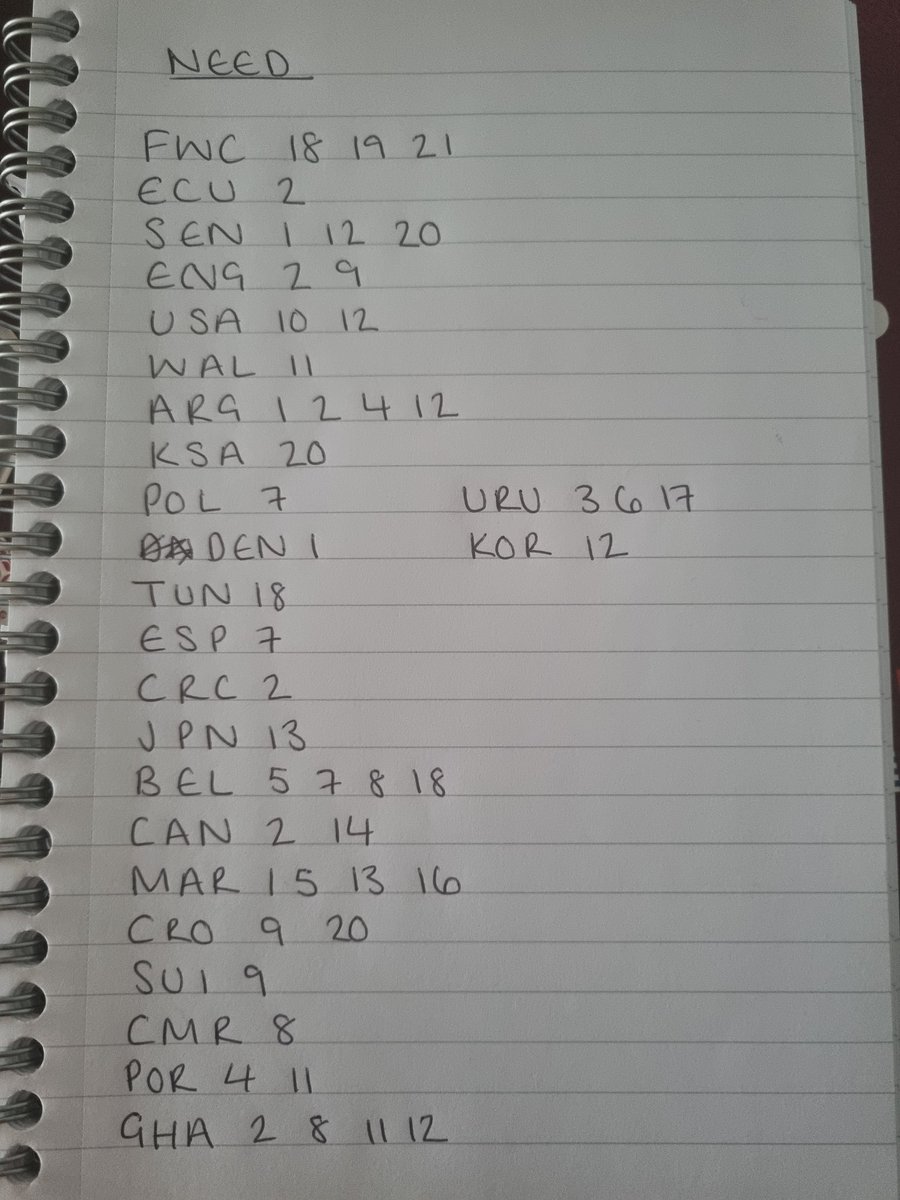 NEED
FWC 18 19 21
ECU 2
SEN 1 12 20
ENG 2 9
USA 10 12
WAL 11
ARG 1 2 4 12
KSA 20
POL 7
DEN 1
TUN 18
ESP 7
CRC 2
JPN 13
BEL 5 7 8 18
CAN 2 14
MAR 1 5 13 16
CRO 9 20
SUI 9
CMR 8
POR 4 11
GHA 2 8 11 12
URU 3 6 17
KOR 12